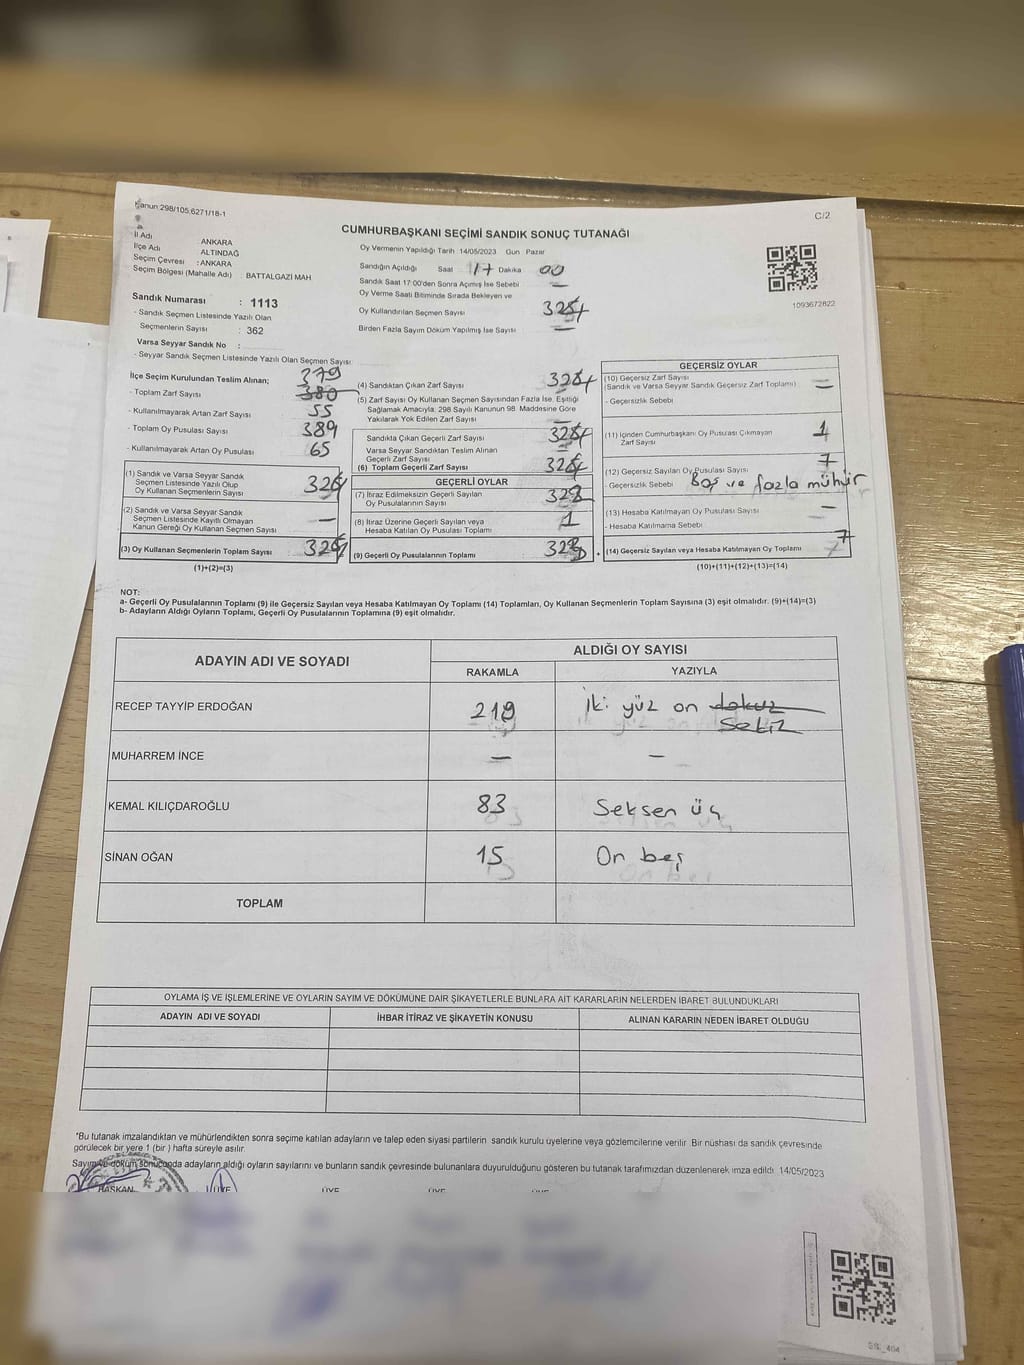 Kanun:298/105;6271/18-1
C/2
CUMHURBAŞKANI SEÇİMİ SANDIK SONUÇ TUTANAĞI
İl Adı : ANKARA
İlçe Adı : ALTINDAĞ
Seçim Çevresi : ANKARA
Seçim Bölgesi (Mahalle Adı) : BATTALGAZİ MAH
Sandık Numarası : 1113
- Sandık Seçmen Listesinde Yazılı Olan
Seçmenlerin Sayısı : 362
Varsa Seyyar Sandık No :
- Seyyar Sandık Seçmen Listesinde Yazılı Olan Seçmen Sayısı:
Oy Vermenin Yapıldığı Tarih 14/05/2023 Gün Pazar
Sandığın Açıldığı Saat 17 Dakika 00
Sandık Saat 17:00'den Sonra Açmış İse Sebebi —
Oy Verme Saati Bitiminde Sırada Bekleyen ve
Oy Kullandırılan Seçmen Sayısı
Birden Fazla Sayım Döküm Yapılmış İse Sayısı —
1093672822
İlçe Seçim Kurulundan Teslim Alınan; 379
- Toplam Zarf Sayısı 380
- Kullanılmayarak Artan Zarf Sayısı 55
- Toplam Oy Pusulası Sayısı 389
- Kullanılmayarak Artan Oy Pusulası 65
(1) Sandık ve Varsa Seyyar Sandık
Seçmen Listesinde Yazılı Olup
Oy Kullanan Seçmenlerin Sayısı
(2) Sandık ve Varsa Seyyar Sandık
Seçmen Listesinde Kayıtlı Olmayan
Kanun Gereği Oy Kullanan Seçmen Sayısı —
(3) Oy Kullanan Seçmenlerin Toplam Sayısı
(1)+(2)=(3)
(4) Sandıktan Çıkan Zarf Sayısı
(5) Zarf Sayısı Oy Kullanan Seçmen Sayısından Fazla İse, Eşitliği
Sağlamak Amacıyla; 298 Sayılı Kanunun 98. Maddesine Göre
Yakılarak Yok Edilen Zarf Sayısı —
Sandıkta Çıkan Geçerli Zarf Sayısı
Varsa Seyyar Sandıktan Teslim Alınan
Geçerli Zarf Sayısı
(6) Toplam Geçerli Zarf Sayısı
GEÇERLİ OYLAR
(7) İtiraz Edilmeksizin Geçerli Sayılan
Oy Pusulalarının Sayısı
(8) İtiraz Üzerine Geçerli Sayılan veya
Hesaba Katılan Oy Pusulası Toplamı 1
(9) Geçerli Oy Pusulalarının Toplamı
GEÇERSİZ OYLAR
(10) Geçersiz Zarf Sayısı
(Sandık ve Varsa Seyyar Sandık Geçersiz Zarf Toplamı) —
- Geçersizlik Sebebi
(11) İçinden Cumhurbaşkanı Oy Pusulası Çıkmayan
Zarf Sayısı 1
(12) Geçersiz Sayılan Oy Pusulası Sayısı 7
- Geçersizlik Sebebi Boş ve fazla mühür
(13) Hesaba Katılmayan Oy Pusulası Sayısı —
- Hesaba Katılmama Sebebi
(14) Geçersiz Sayılan veya Hesaba Katılmayan Oy Toplamı 7
(10)+(11)+(12)+(13)=(14)
NOT:
a- Geçerli Oy Pusulalarının Toplamı (9) ile Geçersiz Sayılan veya Hesaba Katılmayan Oy Toplamı (14) Toplamları, Oy Kullanan Seçmenlerin Toplam Sayısına (3) eşit olmalıdır. (9)+(14)=(3)
b- Adayların Aldığı Oyların Toplamı, Geçerli Oy Pusulalarının Toplamına (9) eşit olmalıdır.
ADAYIN ADI VE SOYADI
ALDIĞI OY SAYISI
RAKAMLA YAZIYLA
RECEP TAYYİP ERDOĞAN 218 iki yüz on dokuz
sekiz
MUHARREM İNCE — —
KEMAL KILIÇDAROĞLU 83 Seksen üç
SİNAN OĞAN 15 On beş
TOPLAM
OYLAMA İŞ VE İŞLEMLERİNE VE OYLARIN SAYIM VE DÖKÜMÜNE DAİR ŞİKAYETLERLE BUNLARA AİT KARARLARIN NELERDEN İBARET BULUNDUKLARI
ADAYIN ADI VE SOYADI İHBAR İTİRAZ VE ŞİKAYETİN KONUSU ALINAN KARARIN NEDEN İBARET OLDUĞU
*Bu tutanak imzalandıktan ve mühürlendikten sonra seçime katılan adayların ve talep eden siyasi partilerin sandık kurulu üyelerine veya gözlemcilerine verilir. Bir nüshası da sandık çevresinde
görülecek bir yere 1 (bir) hafta süreyle asılır.
Sayım ve döküm sonucunda adayların aldığı oyların sayılarını ve bunların sandık çevresinde bulunanlara duyurulduğunu gösteren bu tutanak tarafımızdan düzenlenerek imza edildi. 14/05/2023
BAŞKAN ÜYE ÜYE ÜYE ÜYE